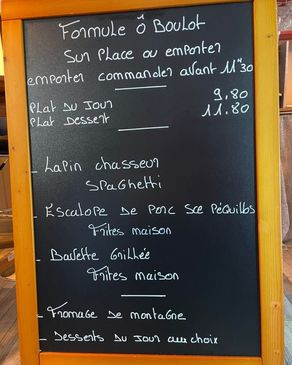 Formule Ô Boulot
Sur Place ou emporter
emporter commander avant 11h30
Plat du Jour 9,80
Plat Dessert 11,80
- Lapin chasseur
Spaghetti
- Escalope de Porc Sce Péquillos
Frites maison
- Bavette Grillée
Frites maison
- Fromage de montagne
- Desserts du Jour au choix